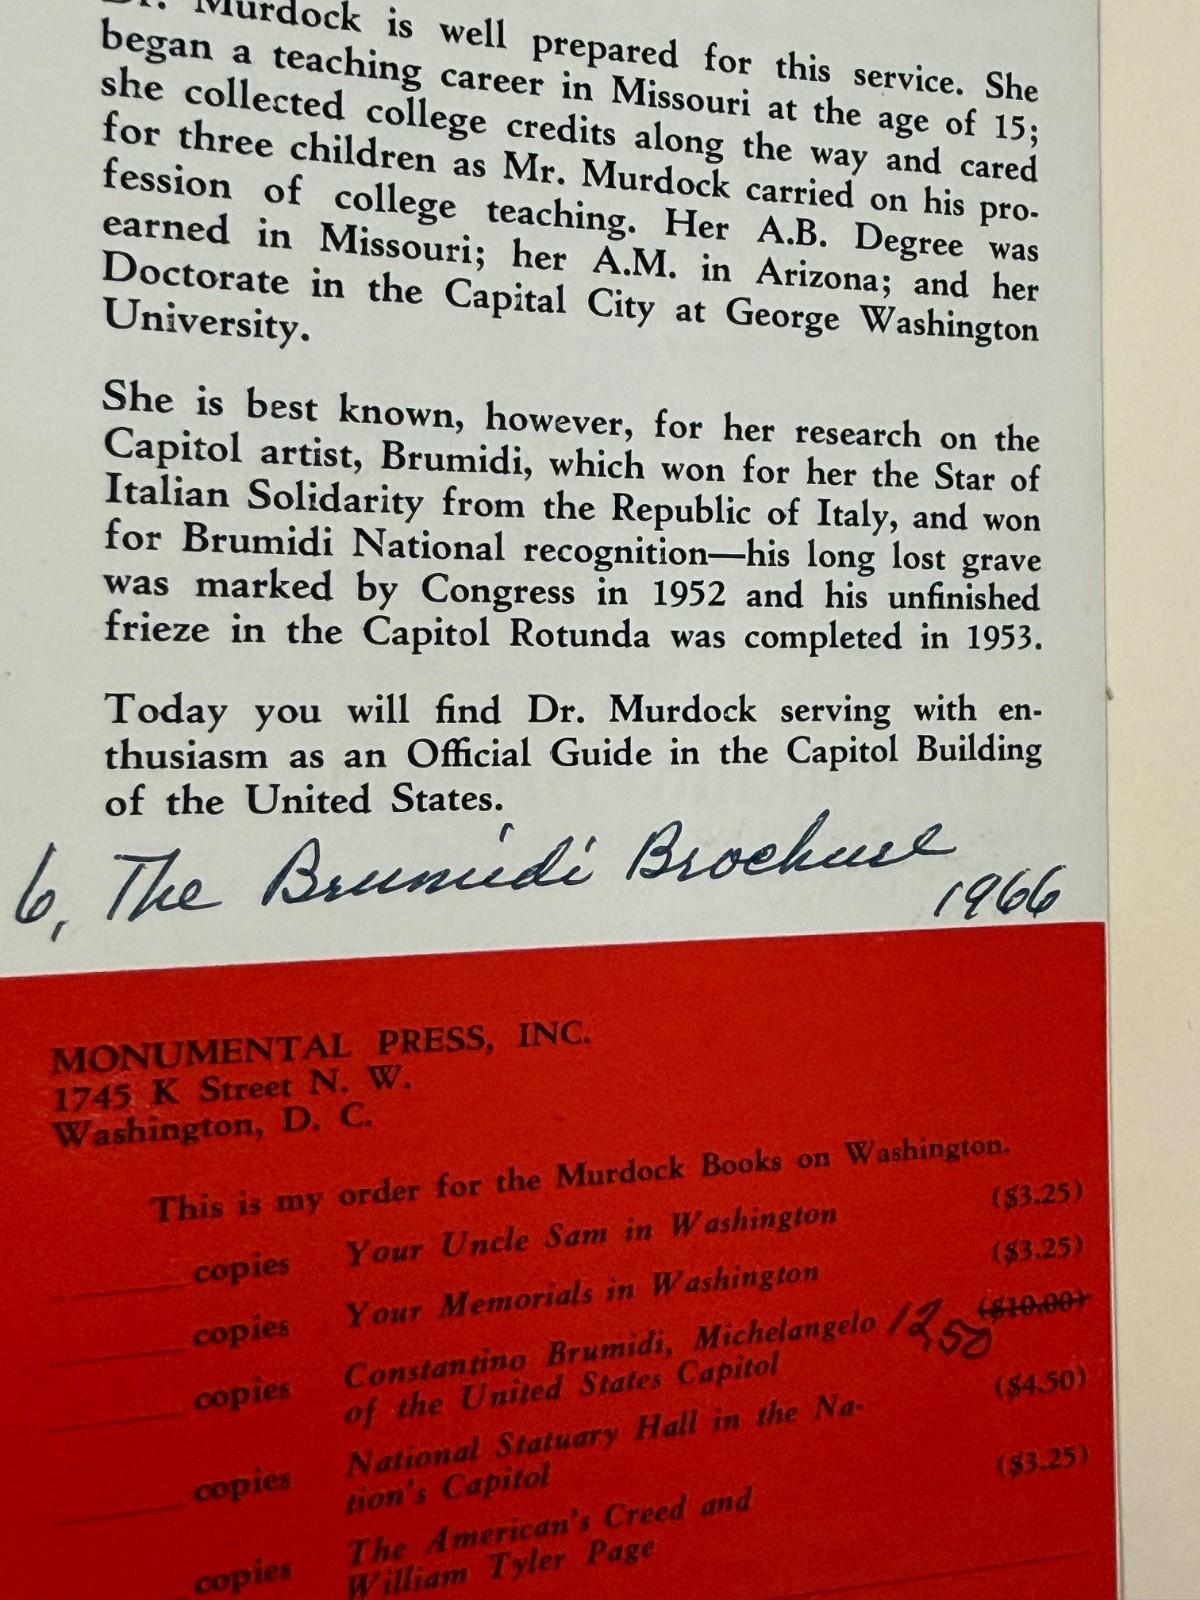 Dr. Murdock is well prepared for this service. She
began a teaching career in Missouri at the age of 15;
she collected college credits along the way and cared
for three children as Mr. Murdock carried on his pro-
fession of college teaching. Her A.B. Degree was
earned in Missouri; her A.M. in Arizona; and her
Doctorate in the Capital City at George Washington
University.
She is best known, however, for her research on the
Capitol artist, Brumidi, which won for her the Star of
Italian Solidarity from the Republic of Italy, and won
for Brumidi National recognition—his long lost grave
was marked by Congress in 1952 and his unfinished
frieze in the Capitol Rotunda was completed in 1953.
Today you will find Dr. Murdock serving with en-
thusiasm as an Official Guide in the Capitol Building
of the United States.
6, The Brumidi Brochure
1966
MONUMENTAL PRESS, INC.
1745 K Street N. W.
Washington, D. C.
This is my order for the Murdock Books on Washington.
copies Your Uncle Sam in Washington ($3.25)
copies Your Memorials in Washington ($3.25)
copies Constantino Brumidi, Michelangelo 12,50 ($10.00)
of the United States Capitol
copies National Statuary Hall in the Na- ($4.50)
tion's Capitol
copies The American's Creed and ($3.25)
William Tyler Page